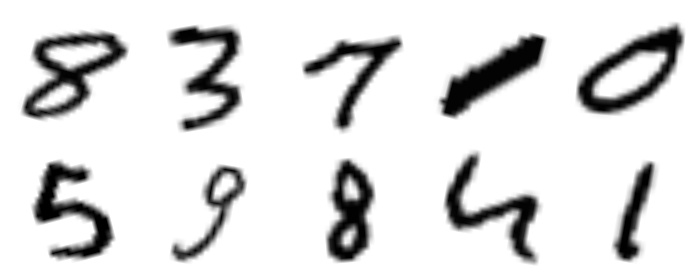 8 3 7 1 0
5 9 8 4 1